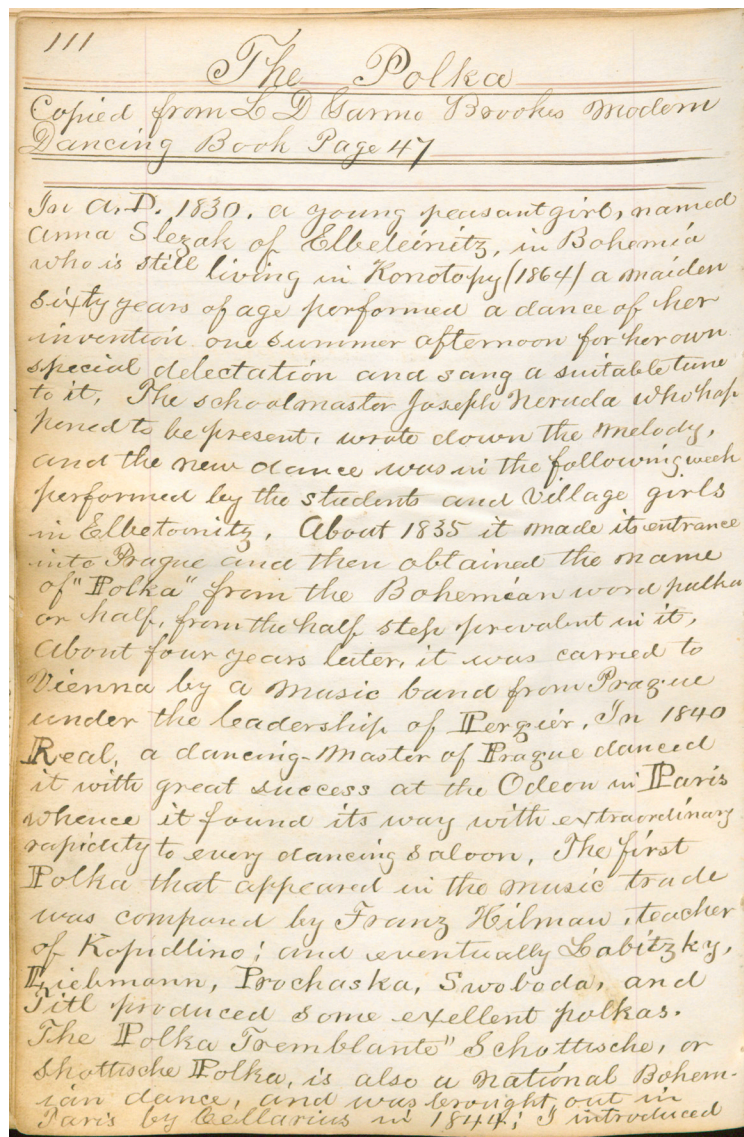 111
The Polka
Copied from L D Garmo Brookes Modern
Dancing Book Page 47
In A.D. 1830, a young peasant girl, named
Anna Slezak of Elbeleinitz, in Bohemia
who is still living in Konotopy (1864) a maiden
sixty years of age performed a dance of her
invention one summer afternoon for her own
special delectation and sang a suitable tune
to it. The schoolmaster Joseph Neruda who hap
pened to be present, wrote down the melody,
and the new dance was in the following week
performed by the students and Village girls
in Elbetonitz. About 1835 it made its entrance
into Prague and then obtained the name
of "Polka" from the Bohemian word pulka
or half, from the half step prevalent in it,
About four years later, it was carried to
Vienna by a music band from Prague
under the leadership of Pergier. In 1840
Real, a dancing-Master of Prague danced
it with great success at the Odeon in Paris
whence it found its way with extraordinary
rapidity to every dancing saloon. The first
Polka that appeared in the music trade
was composed by Franz Hilman, teacher
of Kopidlino; and eventually Labitzky,
Liebmann, Prochaska, Swoboda, and
Titl produced some exellent polkas.
The Polka Tremblante" Schottische, or
Shottische Polka, is also a national Bohem-
ian dance, and was brought out in
Paris by Cellarius in 1844; I introduced